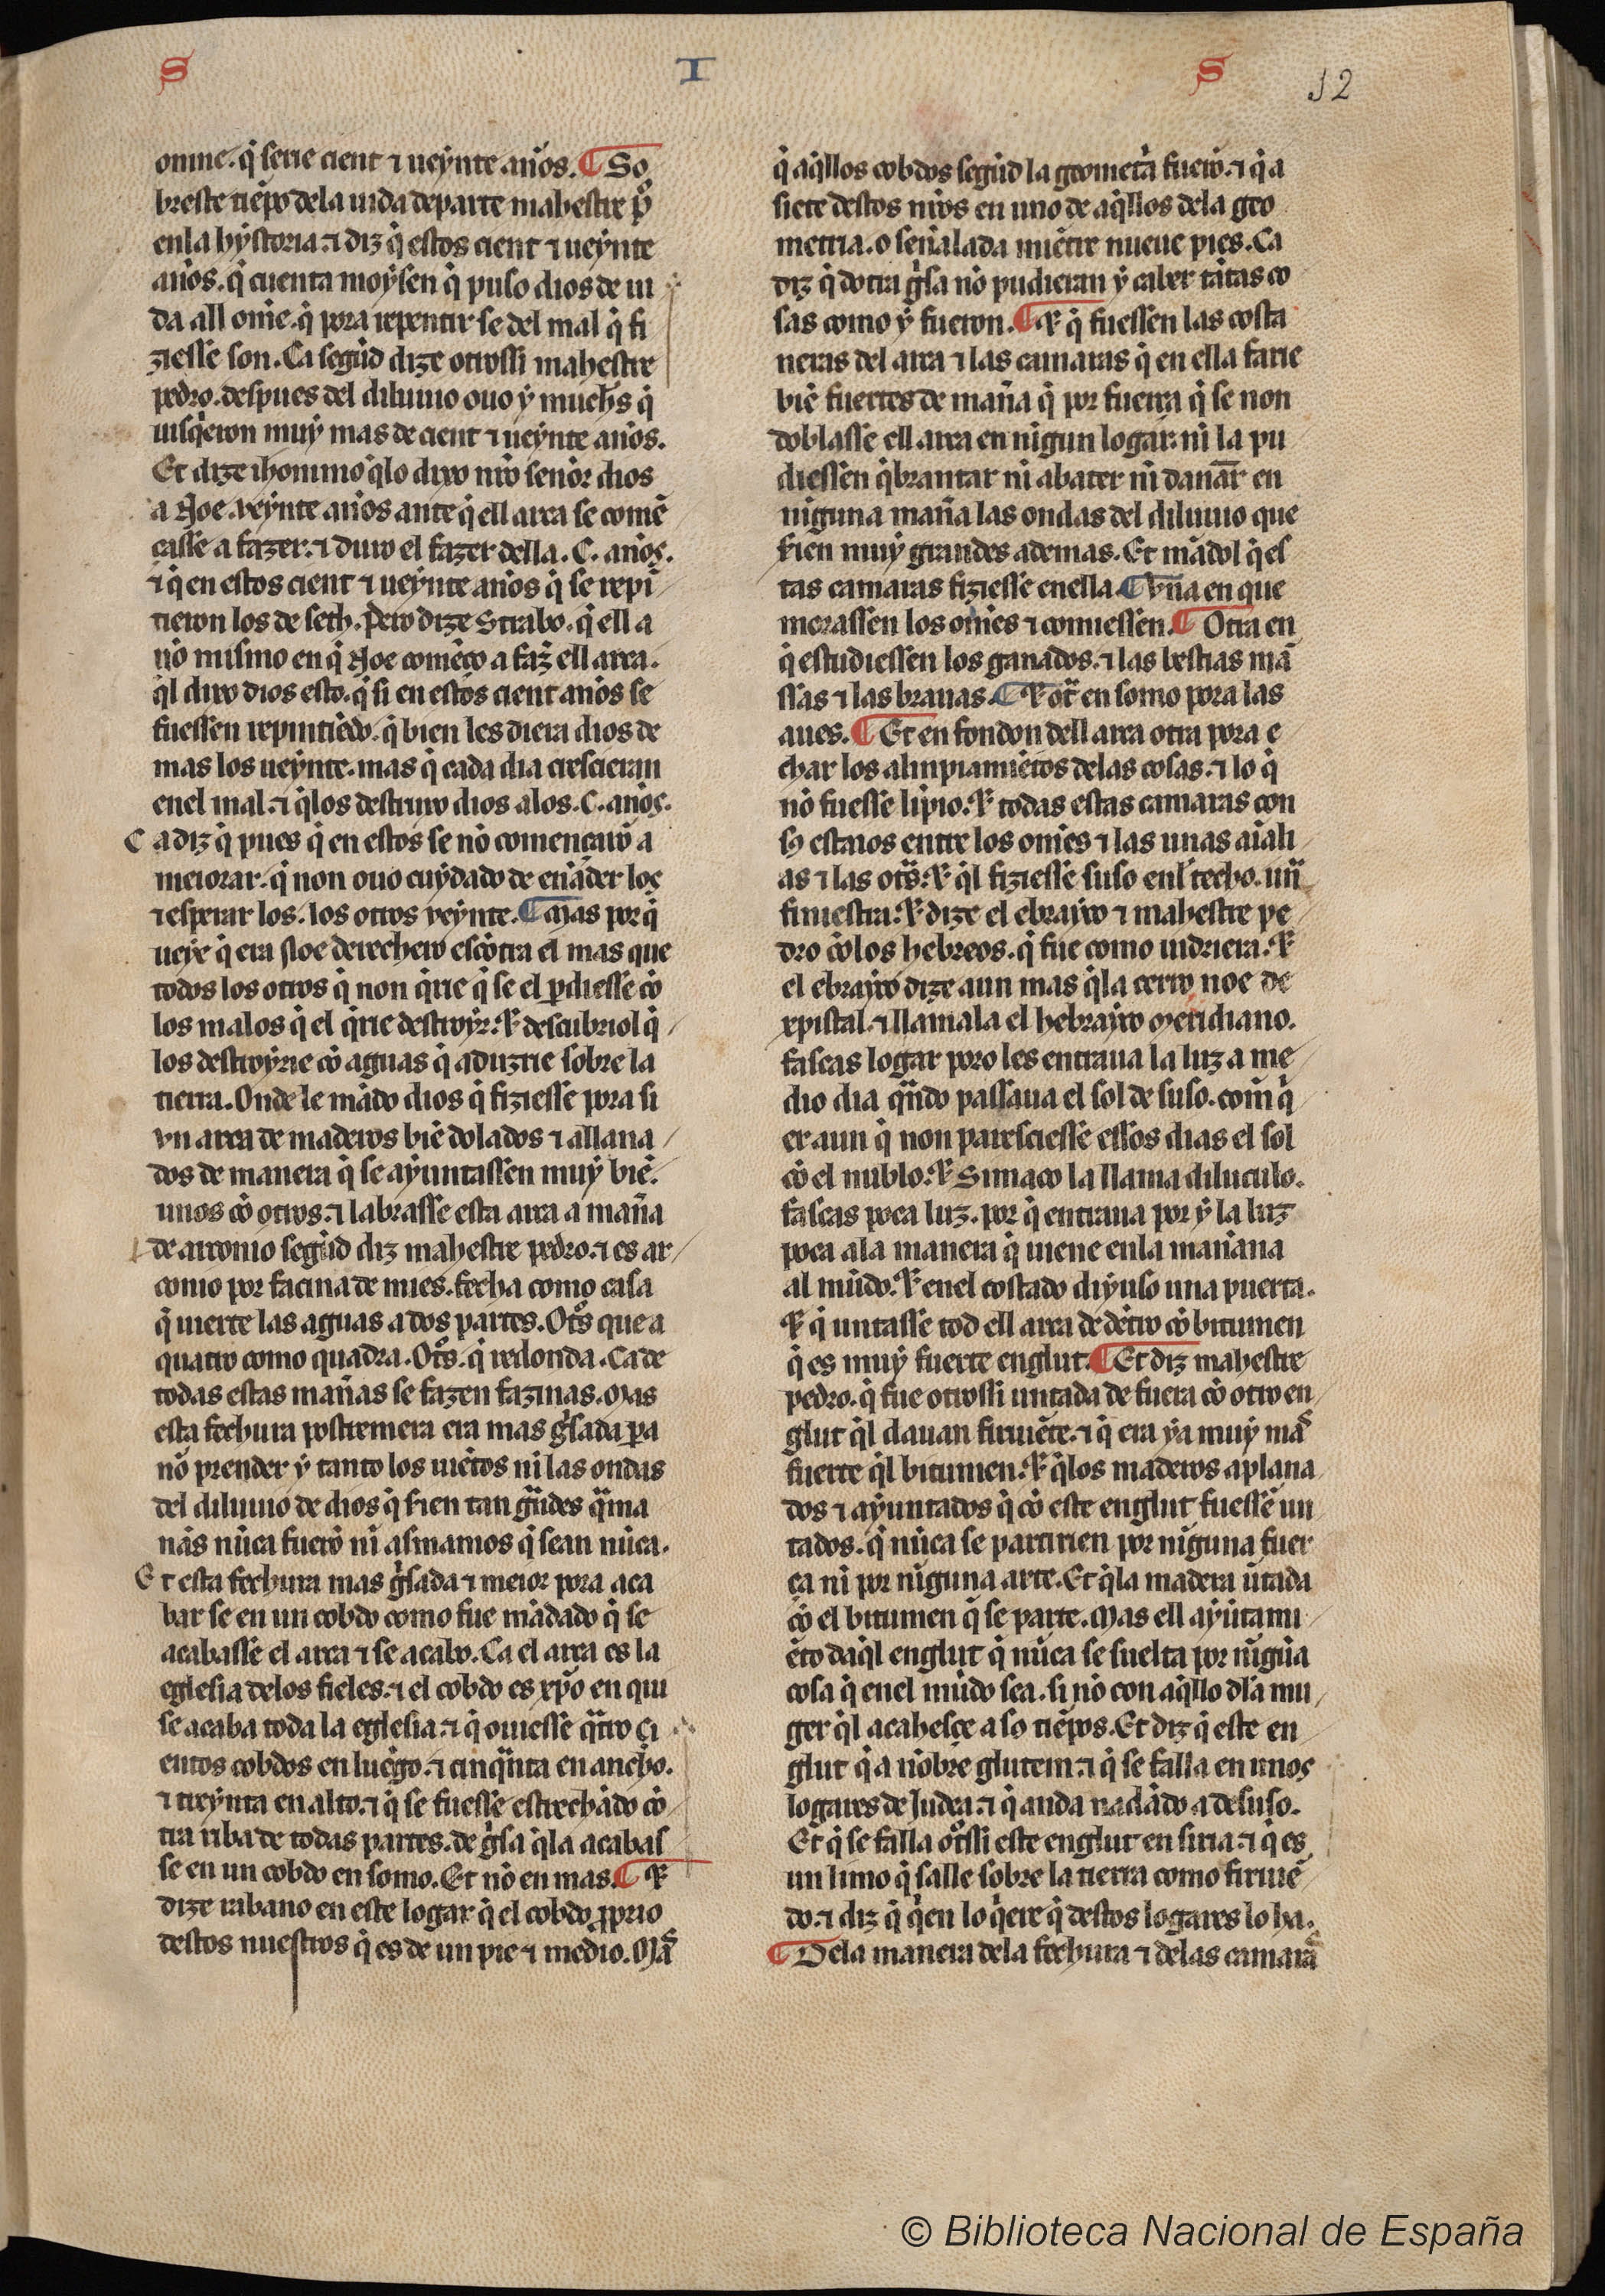 S I S 12
omne. q̃ serie cient ⁊ ueynte annos. ¶ So
breste tiẽpo dela uida departe mahestre p̃o
enla hystoria. ⁊ diz q̃ estos cient ⁊ ueynte
annos. q̃ cuenta moysen q̃ puso dios de ui
da all omne. q̃ pora repentir se del mal q̃ fi
ziesse son. Ca segũd dize otrossi mahestre
pedro. despues del diluuio ouo y muchos q̃
uisq̃eron muy mas de cient ⁊ ueynte annos.
Et dize ihonimo q̃lo dixo nr̃o sennor dios
a Noe. veynte annos ante q̃ ell arca se comẽ
çasse a fazer. ⁊ duro el fazer della. C. annos.
⁊ q̃ en estos cient ⁊ ueynte annos q̃ se repĩ
tieron los de seth. Pero dize Strabo. q̃ ell a
nno mismo en q̃ Noe comẽço a faz̃ ell arca.
q̃l dixo dios esto. q̃ si en estos cient annos se
fuessen repintiẽdo. q̃ bien les diera dios de
mas los ueynte. mas q̃ cada dia crescieran
enel mal. ⁊ q̃los destruxo dios alos. C. annos.
Ca diz q̃ pues q̃ en estos se nõ començarõ a
meiorar. q̃ non ouo cuydado de enãder los
⁊ esperar los. los otros veynte. ¶ Mas por q̃
ueye q̃ era Noe derechero escõtra el mas que
todos los otros q̃ non q̃rie q̃ se el p̱diesse cõ
los malos q̃ el q̃rie destroyr. ⁊ descubriol q̃
los destroyrie cõ aguas q̃ aduzrie sobre la
tierra. Onde le mãdo dios q̃ fiziesse pora si
vn arca de maderos biẽ dolados ⁊ allana
dos de manera q̃ se ayuntassen muy biẽ.
unos cõ otros. ⁊ labrasse esta arca a mañа
de arconio segũd diz mahestre pedro. ⁊ es ar
conio por facina de mies. fecha como casa
q̃ uierte las aguas a dos partes. Otos que a
quatro como quadra. Otos. q̃ redonda. Ca de
todas estas mañas se fazen fazinas. Mas
esta fechura postremera era mas g̃sada p̱a
nõ prender y tanto los uiẽtos ni las ondas
del diluuio de dios q̃ sien tan g̃ndes q̃ma
nãs nũca fuerõ ni asmamos q̃ sean nũca.
Et esta fechura mas g̃sada ⁊ meior pora aca
bar se en un cobdo como fue mãdado q̃ se
acabasse el arca ⁊ se acabo. Ca el arca es la
eglesia delos fieles. ⁊ el cobdo es xp̃o en qui
se acaba toda la eglesia. ⁊ q̃ ouiesse q̃tro çi
entos cobdos en luẽgo. ⁊ cinq̃nta en ancho.
⁊ treynta en alto. ⁊ q̃ se fuesse estrechãdo cõ
tra riba de todas partes. de g̃sa q̃la acabas
se en un cobdo en somo. Et nõ en mas. ¶ ⁊
dize rabano en este logar q̃ el cobdo p̱prio
destos nuestros q̃ es de un pie ⁊ medio. Mas
q̃ aq̃llos cobdos segũd la geometria fuerõ. ⁊ q̃ a
siete destos nr̃os en uno de aq̃llos dela geo
metria. o señalada miẽtre nueue pies. Ca
diz q̃ dotra g̃sa nõ pudieran y caber tãtas co
sas como y fueron. ¶ ⁊ q̃ fuessen las costa
neras del arca ⁊ las camaras q̃ en ella farie
biẽ fuertes de maña q̃ por fuerça q̃ se non
doblasse ell arca en nĩgun logar. nĩ la pu
diessen q̃brantar nĩ abater nĩ danar en
nĩguna maña las ondas del diluuio que
sien muy grandes ademas. Et mãdol q̃ es
tas camaras fiziesse enella. ¶ Vna en que
morassen los om̃es ⁊ comiessen. ¶ Otra en
q̃ estudiessen los ganados. ⁊ las bestias mã
ssas ⁊ las brauas. ¶ ⁊ otr̃ en somo pora las
aues. ¶ Et en fondon dell arca otra pora e
char los alinpiamiẽtos delas cosas. ⁊ lo q̃
nõ fuesse lĩpio. ⁊ todas estas camaras con
so estaios entre los om̃es ⁊ las unas aĩali
as ⁊ las otr̃s. ⁊ q̃l fiziesse suso enl techo. un̄
finiestra. ⁊ dize el ebrayco ⁊ mahestre pe
dro cõlos hebreos. q̃ fue como uidriera. ⁊
el ebrayco dize aun mas q̃la cerro noe de
xpistal. ⁊ llamala el hebrayco Meridiano.
fascas logar poro les entraua la luz a me
dio dia q̃ndo passaua el sol de suso. com̃ q̃
er aun q̃ non paresciesse essos dias el sol
cõ el nublo. ⁊ Simaco la llama diluculo.
fascas poca luz. por q̃ entraua por y la luz
poca ala manera q̃ uiene enla mañana
al mũdo. ⁊ enel costado diyuso una puerta.
⁊ q̃ untasse tod ell arca de dẽtro cõ bitumen
q̃ es muy fuerte englut. ¶ Et diz mahestre
pedro. q̃ fue otrossi untada de fuera cõ otro en
glut q̃l dauan firmẽte. ⁊ q̃ era ya muy mas
fuerte q̃l bitumen. ⁊ q̃los maderos aplana
dos ⁊ ayuntados q̃ cõ este englut fuessẽ un
tados. q̃ nũca se partirien por nĩguna fuer
ça nĩ por nĩguna arte. Et q̃la madera ũtada
cõ el bitumen q̃ se parte. Mas ell ayũtami
ẽto daq̃l englut q̃ nũca se suelta por nĩgũa
cosa q̃ enel mũdo sea. si nõ con aq̃llo dla mu
ger q̃l acahesçe a so tiẽpos. Et diz q̃ este en
glut q̃ a nõbre glutem. ⁊ q̃ se falla en unos
logares de Iudea. ⁊ q̃ anda nadãdo a desuso.
Et q̃ se falla otossi este englut en siria. ⁊ q̃ es
un limo q̃ salle sobre la tierra como firuiẽ
do. ⁊ diz q̃ q̃en lo q̃ere q̃ destos logares lo ha.
¶ Dela manera dela fechura ⁊ delas camaras
© Biblioteca Nacional de España